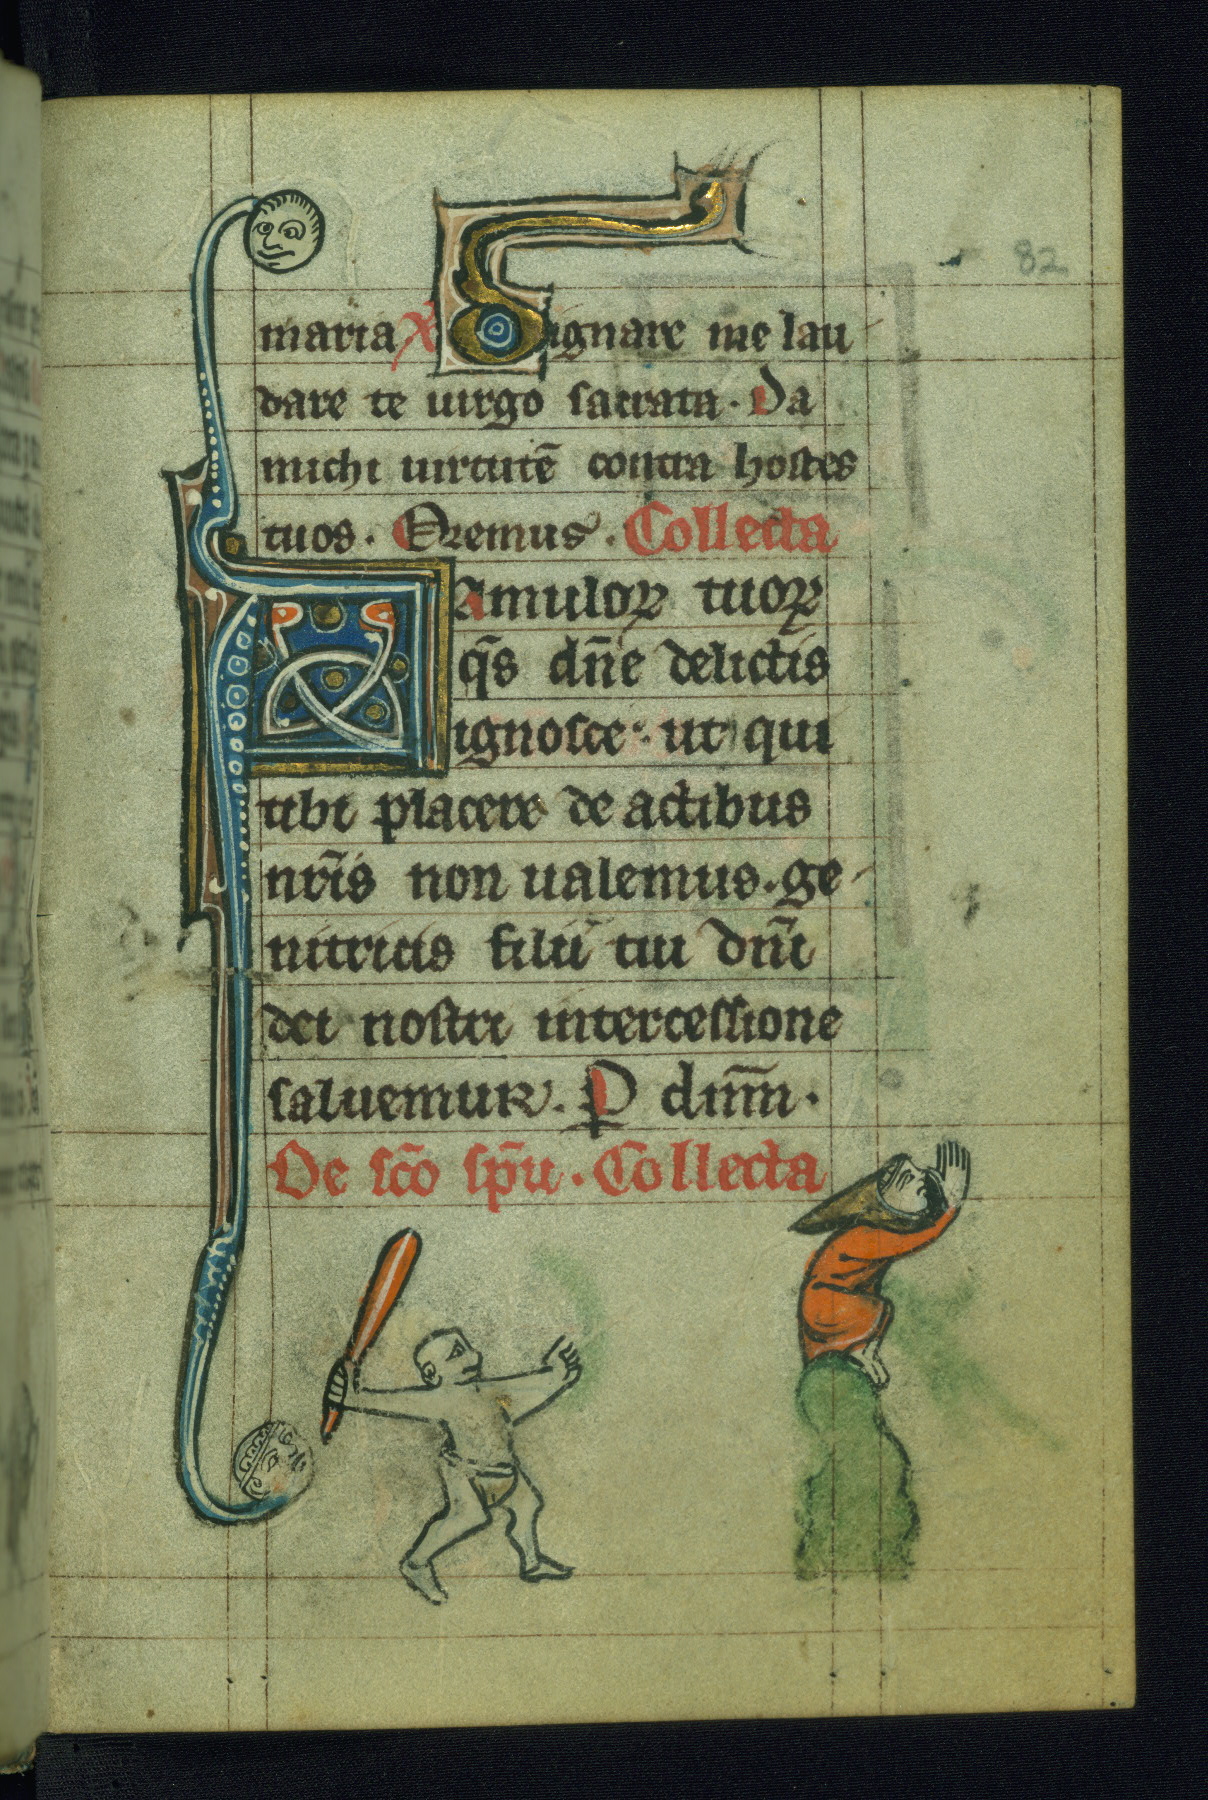 82
maria D ignare me lau
dare te uirgo sacrata. Da
michi uirtutē contra hostes
tuos. Oremus. Collecta
F Amuloꝝ tuoꝝ
q̄s dn̄e delictis
ignosce. ut qui
tibi placere de actibus
nr̄is non ualemus. ge
nitricis filii tui dn̄i
dei nostri intercessione
saluemur. P dn̄m.
De sc̄o sp̄u. Collecta